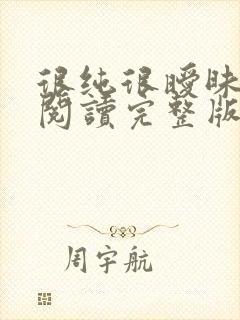 很纯很曖昧
閱讀完整版
周宇航